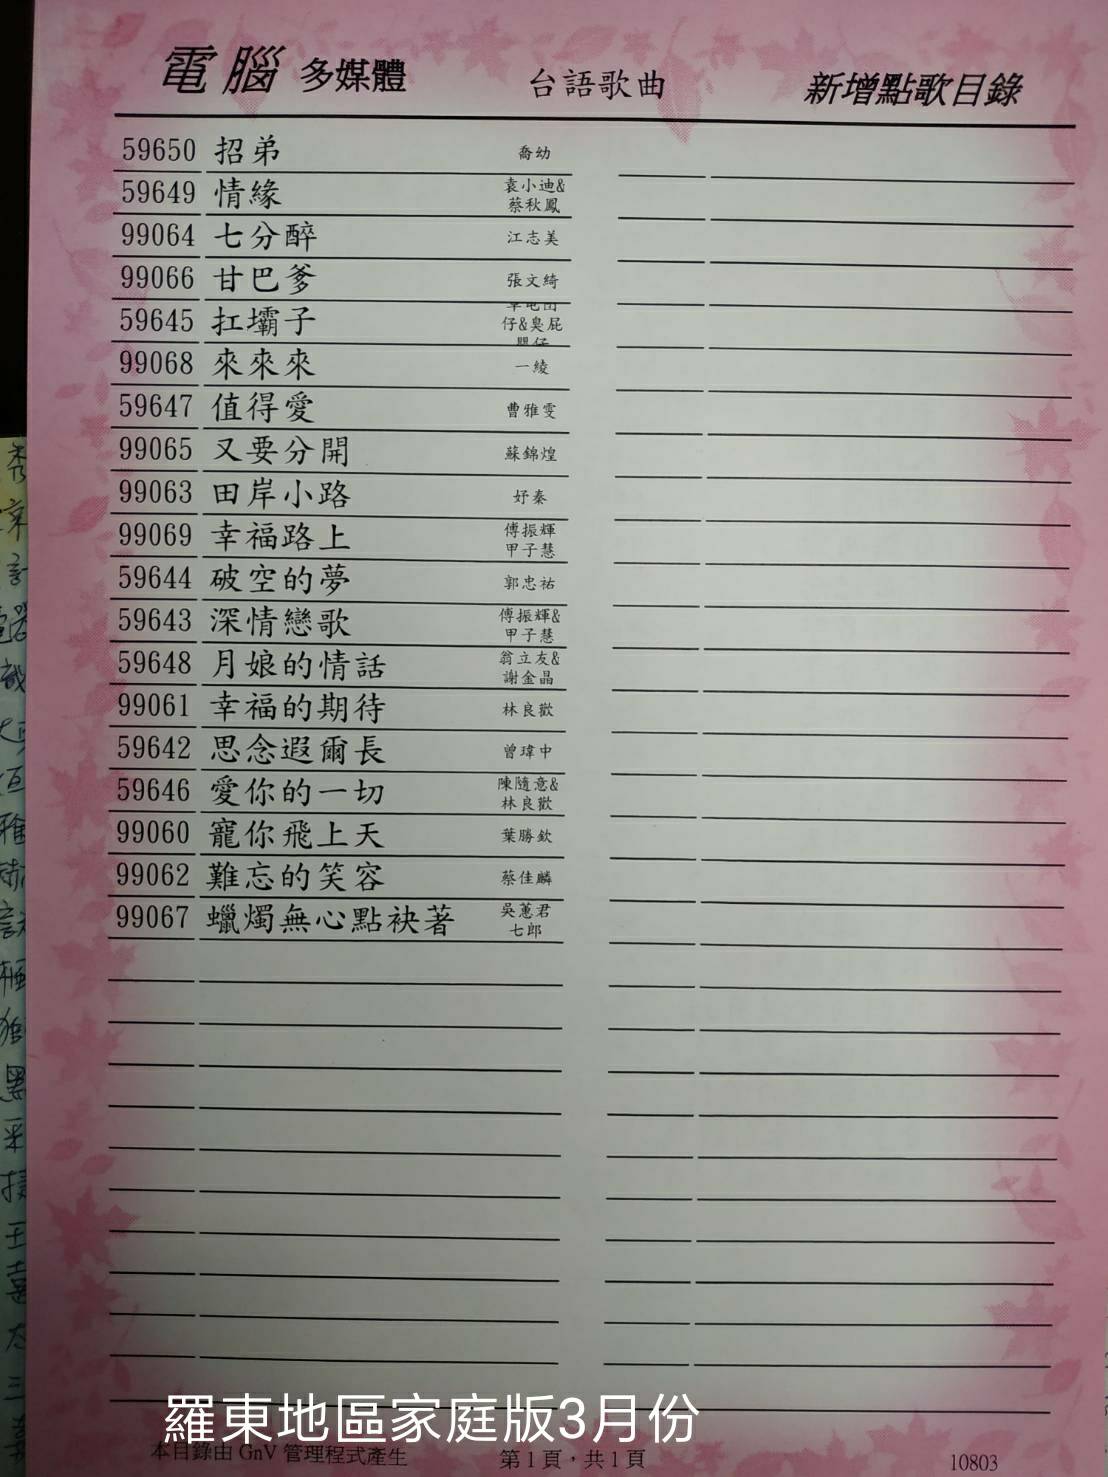 電腦 多媒體 台語歌曲 新增點歌目錄
59650 招弟 喬幼
59649 情緣 袁小迪&
蔡秋鳳
99064 七分醉 江志美
99066 甘巴爹 張文綺
59645 扛壩子 仔&臭屁
99068 來來來 一綾
59647 值得愛 曹雅雯
99065 又要分開 蘇錦煌
99063 田岸小路 妤秦
99069 幸福路上 傅振輝
甲子慧
59644 破空的夢 郭忠祐
59643 深情戀歌 傅振輝&
甲子慧
59648 月娘的情話 翁立友&
謝金晶
99061 幸福的期待 林良歡
59642 思念遐爾長 曾瑋中
59646 愛你的一切 陳隨意&
林良歡
99060 寵你飛上天 葉勝欽
99062 難忘的笑容 蔡佳麟
99067 蠟燭無心點袂著 吳蕙君
七郎
羅東地區家庭版3月份
本目錄由 GnV 管理程式產生 第1頁，共1頁 10803